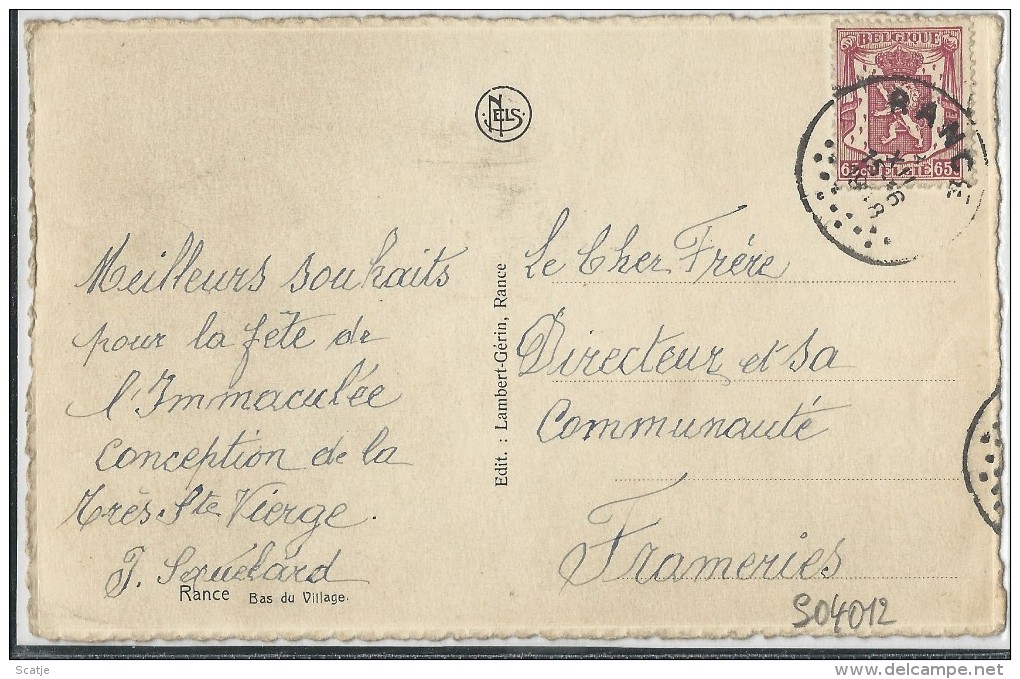 NELS
BELGIQUE
65c BELGIË 65c
RANCE
Meilleurs souhaits
pour la fête de
l'Immaculée
conception de la
très Ste Vierge.
Rance Bas du Village.
Edit. : Lambert-Gérin, Rance
Le Cher Frère
Directeur et sa
Communauté
Frameries
S04012
Scatje
www.delcampe.net